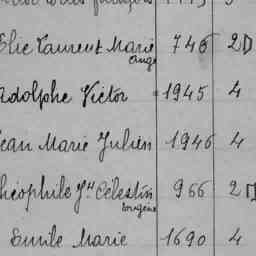 Elie Laurent Marie 746 2D
ange
Adolphe Victor 1945 4
Jean Marie Julien 1946 4
Théophile Jh Célestin 966 2D
Eugène
Emile Marie 1690 4